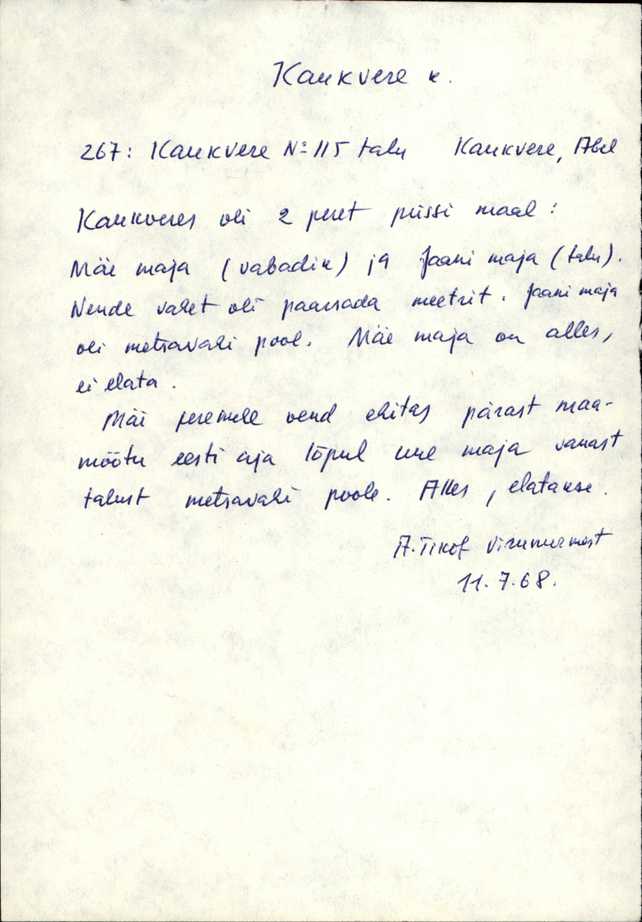 Kaukvere k.
267: Kaukvere № 115 talu Kaukvere, Abel
Kaukveres oli 2 peret püssi maal:
Mäe maja (vabadik) ja Jaani maja (talu).
Nende vahet oli paarsada meetrit. Jaani maja
oli metsavahi pool. Mäe maja on alles,
ei elata.
Mäe peremehe vend ehitas pärast maa-
mõõtu eesti aja lõpul uue maja vanast
talust metsavahi poole. Alles, elatakse.
A. Tikof Virunurmest
11.7.68.